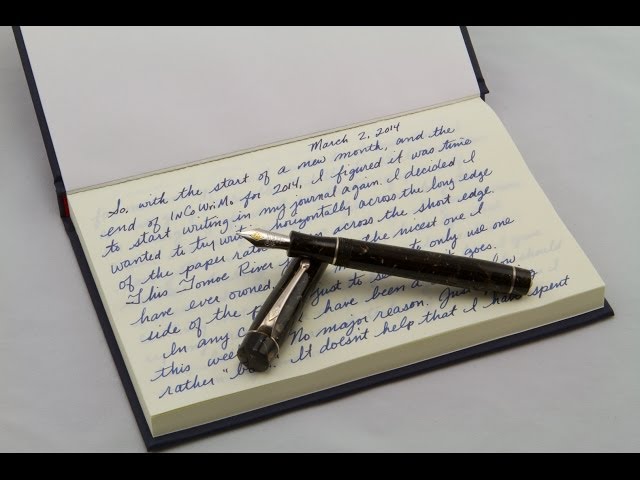 March 2, 2014
So, with the start of a new month, and the
end of InCoWriMo for 2014, I figured it was time
to start writing in my journal again. I decided I
wanted to try writing horizontally across the long edge
of the paper rather across the short edge.
This Tomoe River the nicest one I
have ever owned, just to only use one
side of the goes.
In any have been a
this week. No major reason. Just
rather " It doesn't help that I have spent